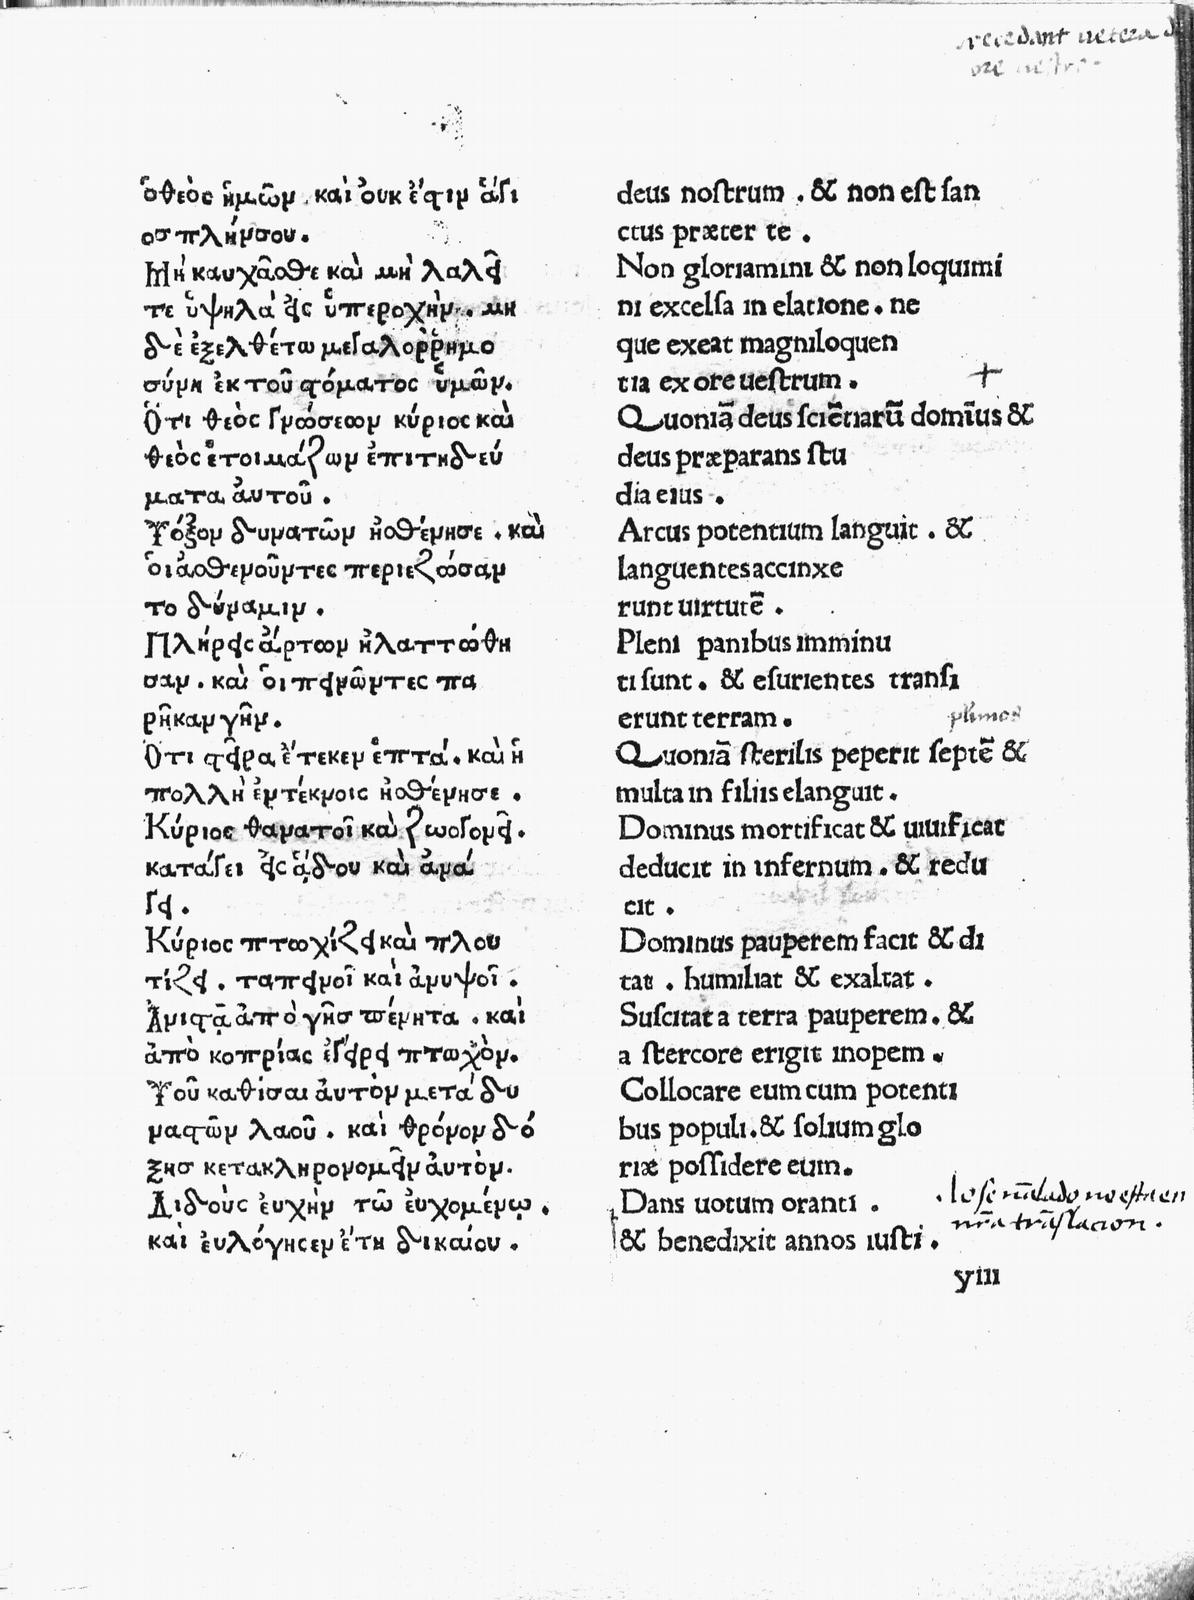 recedant uetera d
ore uestro
ὁ θεὸς ἡμῶν . καὶ ὀυκ ἔϛιν ἅγι
οσ πλήνσου.
Μὴ καυχᾶσθε καὶ μὴ λαλεῖ
τε ὑψηλὰ εἰς ὑπεροχὴν . μη
δὲ ἐξελθέτω μεγαλοῤῥημο
σύνη ἐκ τοῦ ϛόματος ὑμῶν.
Ὅτι θεὸς γνώσεων κύριος καὶ
θεὸς ἑτοιμάζων ἐπιτηδεύ
ματα ἀυτοῦ .
Τόξον δυνατῶν ἠσθένησε . καὶ
ὁι ἀσθενοῦντες περιεζώσαν
το δύναμιν .
Πλήρεις ἄρτων ἠλαττώθη
σαν . καὶ ὁι πεινῶντες πα
ρῆκαν γῆν .
Ὅτι ϛεῖρα ἔτεκεν ἑπτά . καὶ ἡ
πολλὴ ἐντέκνοις ἠσθένησε .
Κύριος θανατοῖ καὶ ζωογονεῖ .
κατάγει εἰς ᾅδου καὶ ἀνά
γει .
Κύριος πτωχίζει καὶ πλου
τίζει . ταπεινοῖ καὶ ἀνυψοῖ .
Ἀνιϛᾷ ἀπὸ γῆσ πένητα . καὶ
ἀπὸ κοπρίας ἐγείρει πτωχὸν.
Τοῦ καθίσαι ἀυτὸν μετὰ δυ
ναϛῶν λαοῦ . καὶ θρόνον δό
ξησ κετακληρονομεῖν ἀυτὸν.
Διδοὺς ἐυχὴν τῶ ἐυχομένῳ .
καὶ ἐυλόγησεν ἔτη δικαίου .
deus noſtrum . & non eſt ſan
ctus præter te .
Non gloriamini & non loquimi
ni excelſa in elatione . ne
que exeat magniloquen
tia ex ore ueſtrum . +
Quoniã deus ſciẽtiarũ domĩus &
deus præparans ſtu
dia eius .
Arcus potentium languit . &
languentes accinxe
runt uirtutẽ .
Pleni panibus imminu
ti ſunt . & eſurientes tranſi
erunt terram .
plimos
Quoniã ſterilis peperit ſeptẽ &
multa in filiis elanguit .
Dominus mortificat & uiuificat
deducit in infernum . & redu
cit .
Dominus pauperem facit & di
tat . humiliat & exaltat .
Suſcitat a terra pauperem . &
a ſtercore erigit inopem .
Collocare eum cum potenti
bus populi . & ſolium glo
riæ poſſidere eum .
Dans uotum oranti .
& benedixit annos iuſti .
lo señalado no esta en
nr̃a trãſlacion .
yiii